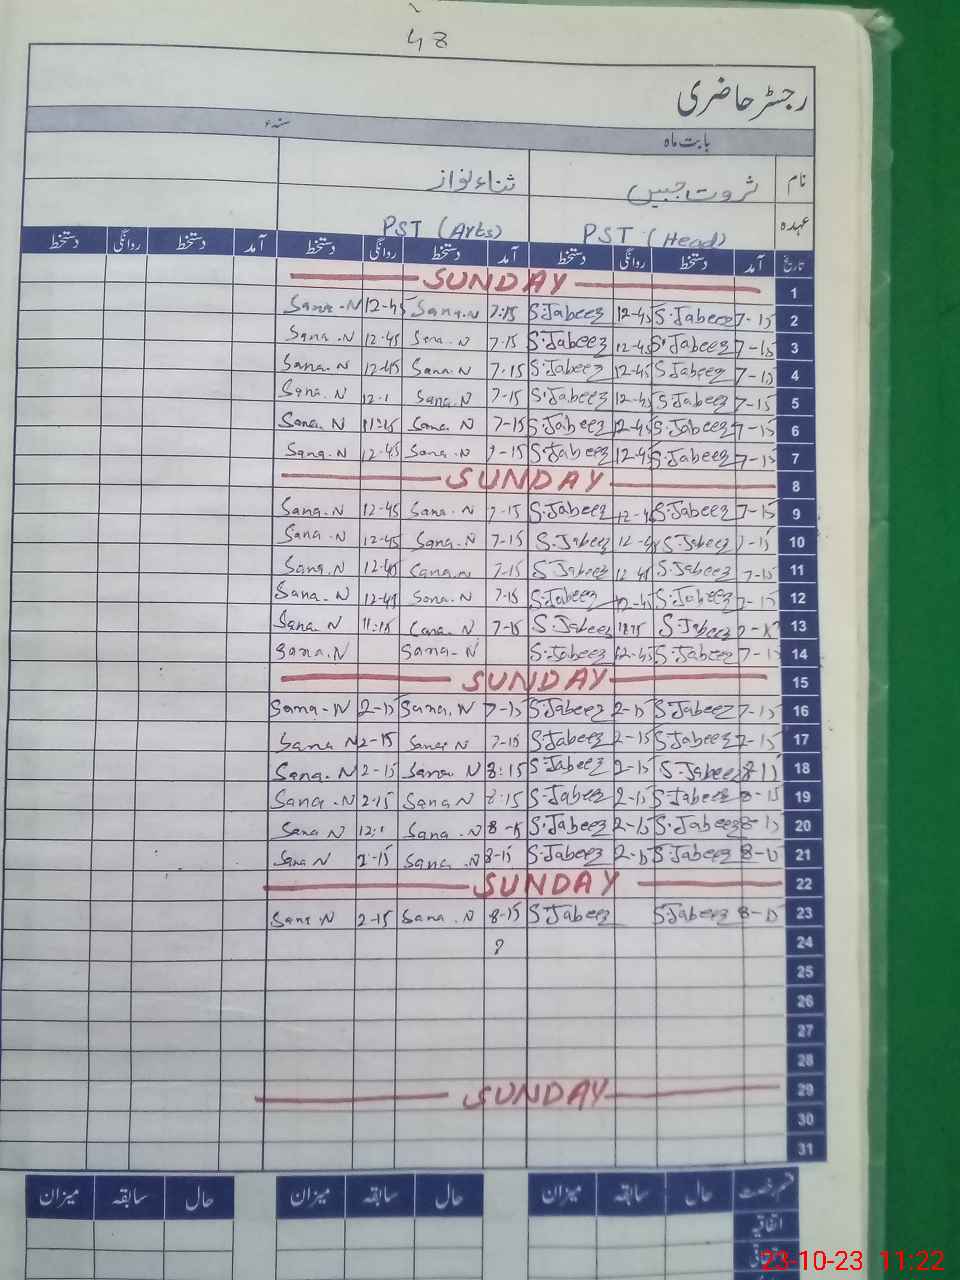 48
رجسٹر حاضری
بابت ماہ سنہء
نام ثروت جبیں ثناء نواز
عہدہ PST (Head) PST (Arts)
تاریخ آمد دستخط روانگی دستخط آمد دستخط روانگی دستخط آمد دستخط روانگی دستخط
SUNDAY 1
Sana.N 12-45 Sana.N 7:15 S.Jabeez 12-45 S.Jabeez 7-15 2
Sana.N 12-45 Sana.N 7-15 S.Jabeez 12-45 S.Jabeez 7-15 3
Sana.N 12-45 Sana.N 7-15 S.Jabeez 12-45 S.Jabeez 7-15 4
Sana.N Sana.N 7-15 S.Jabeez 12-45 S.Jabeez 7-15 5
Sana.N Sana.N 7-15 S.Jabeez 12-45 S.Jabeez 7-15 6
Sana.N 12-45 Sana.N 7-15 S.Jabeez 12-45 S.Jabeez 7-15 7
SUNDAY 8
Sana.N 12-45 Sana.N 7-15 S.Jabeez 12-45 S.Jabeez 7-15 9
Sana.N 12-45 Sana.N 7-15 S.Jabeez S.Jabeez 7-15 10
Sana.N 12-45 Sana.N 7-15 S.Jabeez 12-45 S.Jabeez 7-15 11
Sana.N 12-45 Sana.N 7-15 S.Jabeez 12-45 S.Jabeez 7-15 12
Sana.N 11:15 Sana.N 7-15 S.Jabeez S.Jabeez 13
Sana.N Sana-N S.Jabeez 12-45 S.Jabeez 7-15 14
SUNDAY 15
Sana-N 2-15 Sana.N 7-15 S.Jabeez 2-15 S.Jabeez 7-15 16
Sana N 2-15 Sana N 7-15 S.Jabeez 2-15 S.Jabeez 7-15 17
Sana.N 2-15 Sana N 8:15 S.Jabeez 2-15 S.Jabeez 8-15 18
Sana.N 2:15 Sana N 8:15 S.Jabeez 2-15 S.Jabeez 8-15 19
Sana N Sana.N 8-15 S.Jabeez 2-15 S.Jabeez 8-15 20
Sana N 2-15 Sana.N 8-15 S.Jabeez 2-15 S.Jabeez 8-15 21
SUNDAY 22
Sana N 2-15 Sana.N 8-15 S.Jabeez S.Jabeez 8-15 23
24
25
26
27
28
SUNDAY 29
30
31
قسم رخصت حال سابقہ میزان حال سابقہ میزان حال سابقہ میزان
اتفاقیہ
23-10-23 11:22